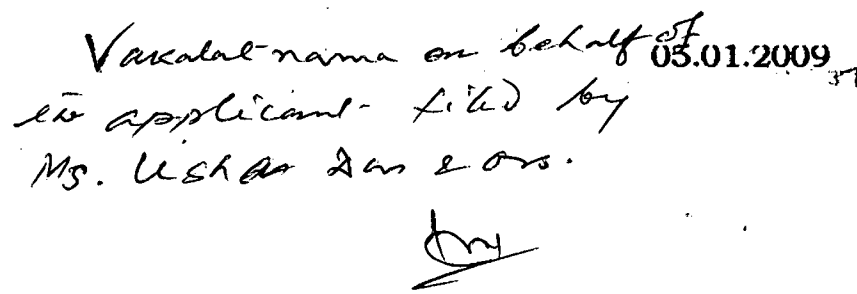 Vakalatnama on behalf of 05.01.2009
the applicant filed by
Ms. Usha Das & ors.